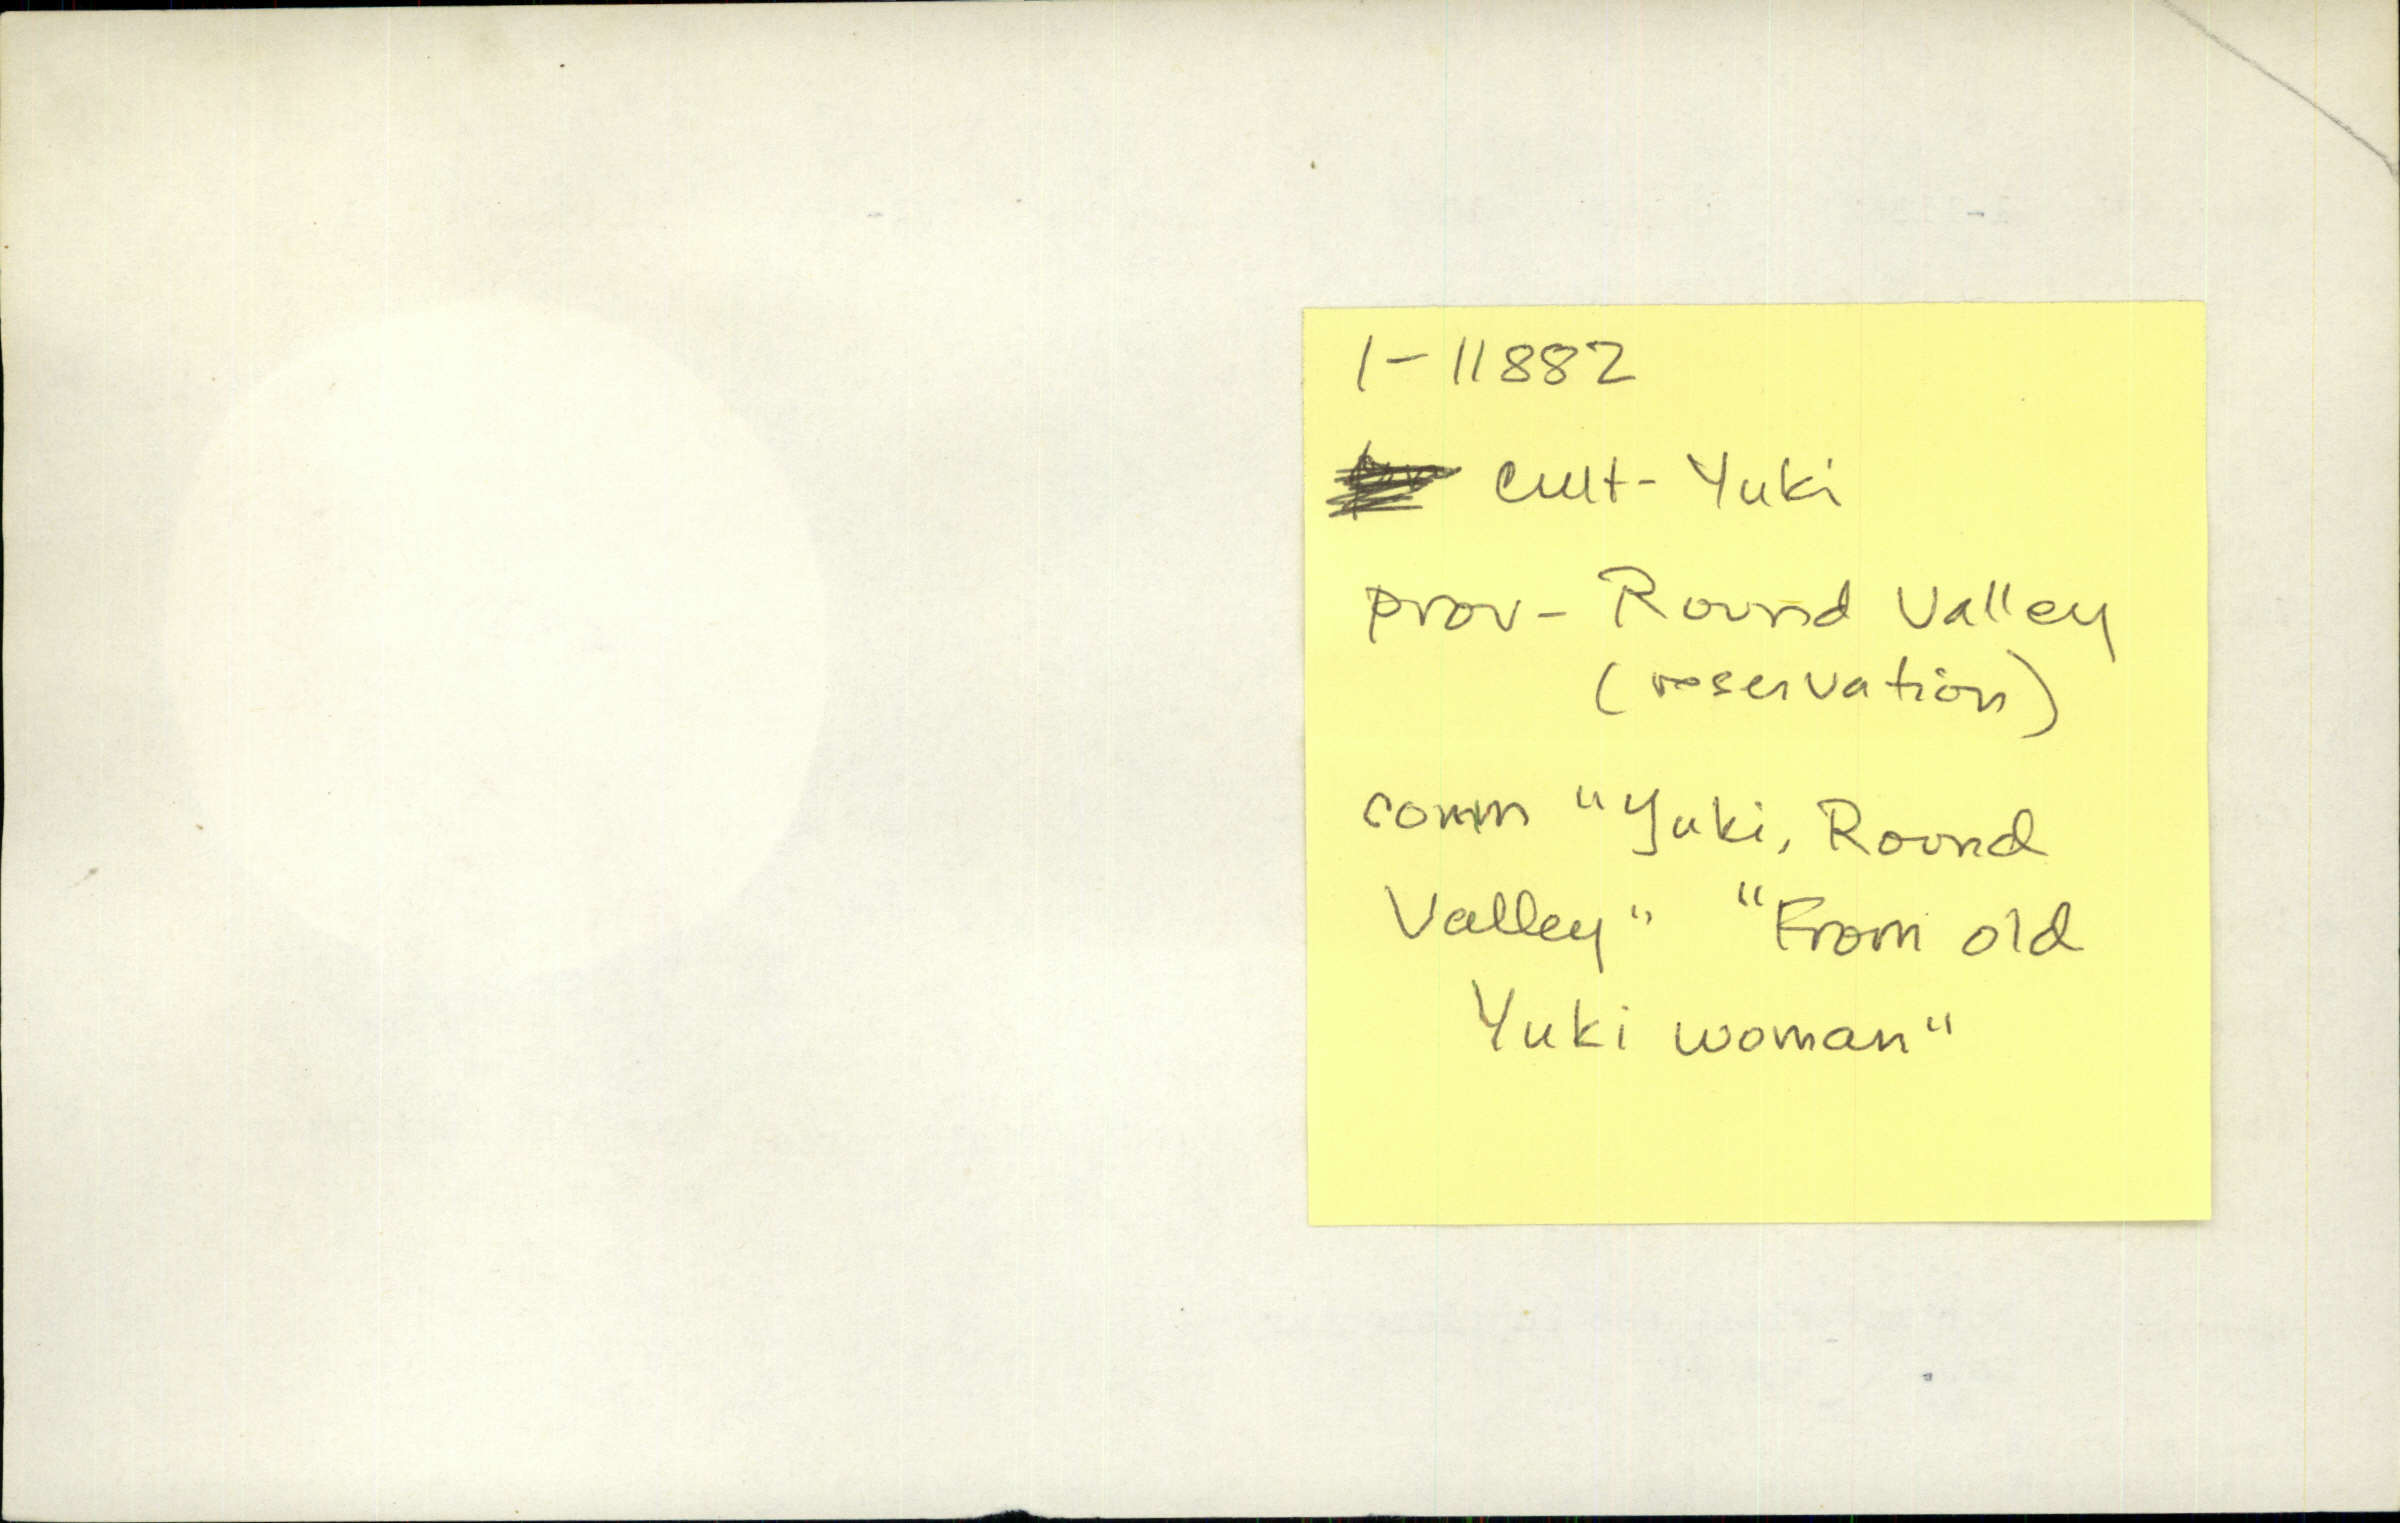 1-11882
cult- Yuki
prov- Round Valley
(reservation)
comm "Yuki, Round
Valley" "From old
Yuki woman"